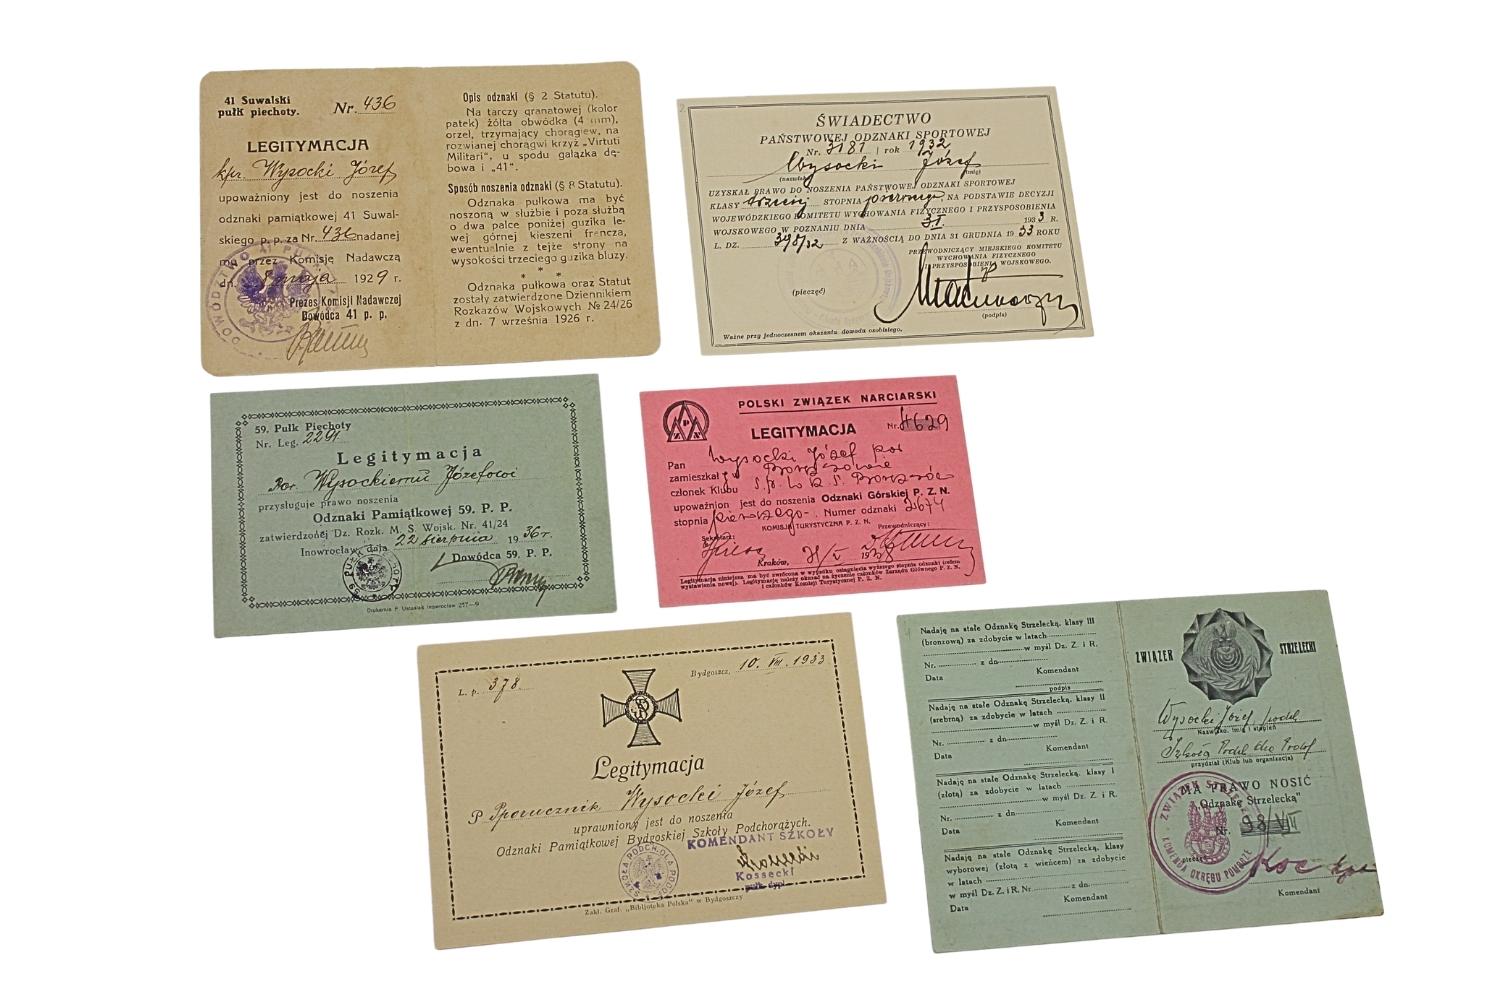 41 Suwalski
pułk piechoty.
Nr. 436
LEGITYMACJA
kpr. Wysocki Józef
upoważniony jest do noszenia
odznaki pamiątkowej 41 Suwal-
skiego p. p. za Nr. 436 nadanej
mu przez Komisję Nadawczą
dn. maja 1929 r.
Prezes Komisji Nadawczej
Dowódca 41 p. p.
DOWÓDZTWO 41
Opis odznaki (§ 2 Statutu).
Na tarczy granatowej (kolor
patek) żółta obwódka (4 mm),
orzeł, trzymający chorągiew, na
rozwianej chorągwi krzyż „Virtuti
Militari", u spodu gałązka dę-
bowa i „41".
Sposób noszenia odznaki (§ 8 Statutu).
Odznaka pułkowa ma być
noszoną w służbie i poza służbą
o dwa palce poniżej guzika le-
wej górnej kieszeni frencza,
ewentualnie z tejże strony na
wysokości trzeciego guzika bluzy.
* * *
Odznaka pułkowa oraz Statut
zostały zatwierdzone Dziennikiem
Rozkazów Wojskowych № 24/26
z dn. 7 września 1926 r.
2.
ŚWIADECTWO
PAŃSTWOWEJ ODZNAKI SPORTOWEJ
Nr. 3181 | rok 1932
Wysocki Józef
(nazwisko) (imię)
UZYSKAŁ PRAWO DO NOSZENIA PAŃSTWOWEJ ODZNAKI SPORTOWEJ
KLASY trzeciej STOPNIA pierwszego, NA PODSTAWIE DECYZJI
WOJEWÓDZKIEGO KOMITETU WYCHOWANIA FIZYCZNEGO I PRZYSPOSOBIENIA
WOJSKOWEGO W POZNANIU DNIA 3.I. 1933 R.
L. DZ. 398/32 Z WAŻNOŚCIĄ DO DNIA 31 GRUDNIA 1933 ROKU
PRZEWODNICZĄCY MIEJSKIEGO KOMITETU
WYCHOWANIA FIZYCZNEGO
I PRZYSPOSOBIENIA WOJSKOWEGO.
(pieczęć)
(podpis)
Ważne przy jednoczesnem okazaniu dowodu osobistego.
59. Pułk Piechoty
Nr. Leg. 2291
Legitymacja
Por. Wysockiemu Józefowi
przysługuje prawo noszenia
Odznaki Pamiątkowej 59. P. P.
zatwierdzonej Dz. Rozk. M. S. Wojsk. Nr. 41/24
Inowrocław, dnia 22 sierpnia 1936 r.
Dowódca 59. P. P.
59 PUŁK PIECHOTY
Drukarnia P. Ustasiak Inowrocław 257—9
PZN
POLSKI ZWIĄZEK NARCIARSKI
LEGITYMACJA Nr. 4629
Pan Wysocki Józef por
zamieszkały
członek Klubu
upoważnion jest do noszenia Odznaki Górskiej P. Z. N.
stopnia pierwszego. Numer odznaki 2674
KOMISJA TURYSTYCZNA P. Z. N.
Sekretarz: Przewodniczący:
Kraków, 31/V 1938
Legitymacja niniejsza ma być zwrócona w wypadku osiągnięcia wyższego stopnia odznaki (celem
wystawienia nowej). Legitymację należy okazać na życzenie członków Zarządu Głównego P. Z. N.
i członków Komisji Turystycznej P. Z. N.
L. p. 378.
Bydgoszcz, 10. VIII. 1933
Legitymacja
P. Pporucznik Wysocki Józef
uprawniony jest do noszenia
Odznaki Pamiątkowej Bydgoskiej Szkoły Podchorążych.
KOMENDANT SZKOŁY
Kossecki
ppłk. dypl.
SZKOŁA PODCH. DLA PODOF.
Zakł. Graf. „Bibljoteka Polska" w Bydgoszczy
Nadaję na stałe Odznakę Strzelecką, klasy III
(bronzową) za zdobycie w latach
w myśl Dz. Z. i R.
Nr. z dn.
Data Komendant
podpis
Nadaję na stałe Odznakę Strzelecką, klasy II
(srebrną) za zdobycie w latach
w myśl Dz. Z. i R.
Nr. z dn.
Data Komendant
Nadaję na stałe Odznakę Strzelecką, klasy I
(złotą) za zdobycie w latach
w myśl Dz. Z. i R.
Nr. z dn.
Data Komendant
Nadaję na stałe Odznakę Strzelecką, klasy
wyborowej (złotą z wieńcem) za zdobycie
w latach
w myśl Dz. Z. i R. Nr. z dn.
Data Komendant
ZWIĄZEK STRZELECKI
Wysocki Józef podch
Nazwisko, imię i stopień
Szkoła Podch dla Podof
przydział (Klub lub organizacja)
MA PRAWO NOSIĆ
„Odznakę Strzelecką"
Nr. 98/VIII
pieczęć
Komendant
ZWIĄZEK STRZELECKI
KOMENDA OKRĘGU POMORZE